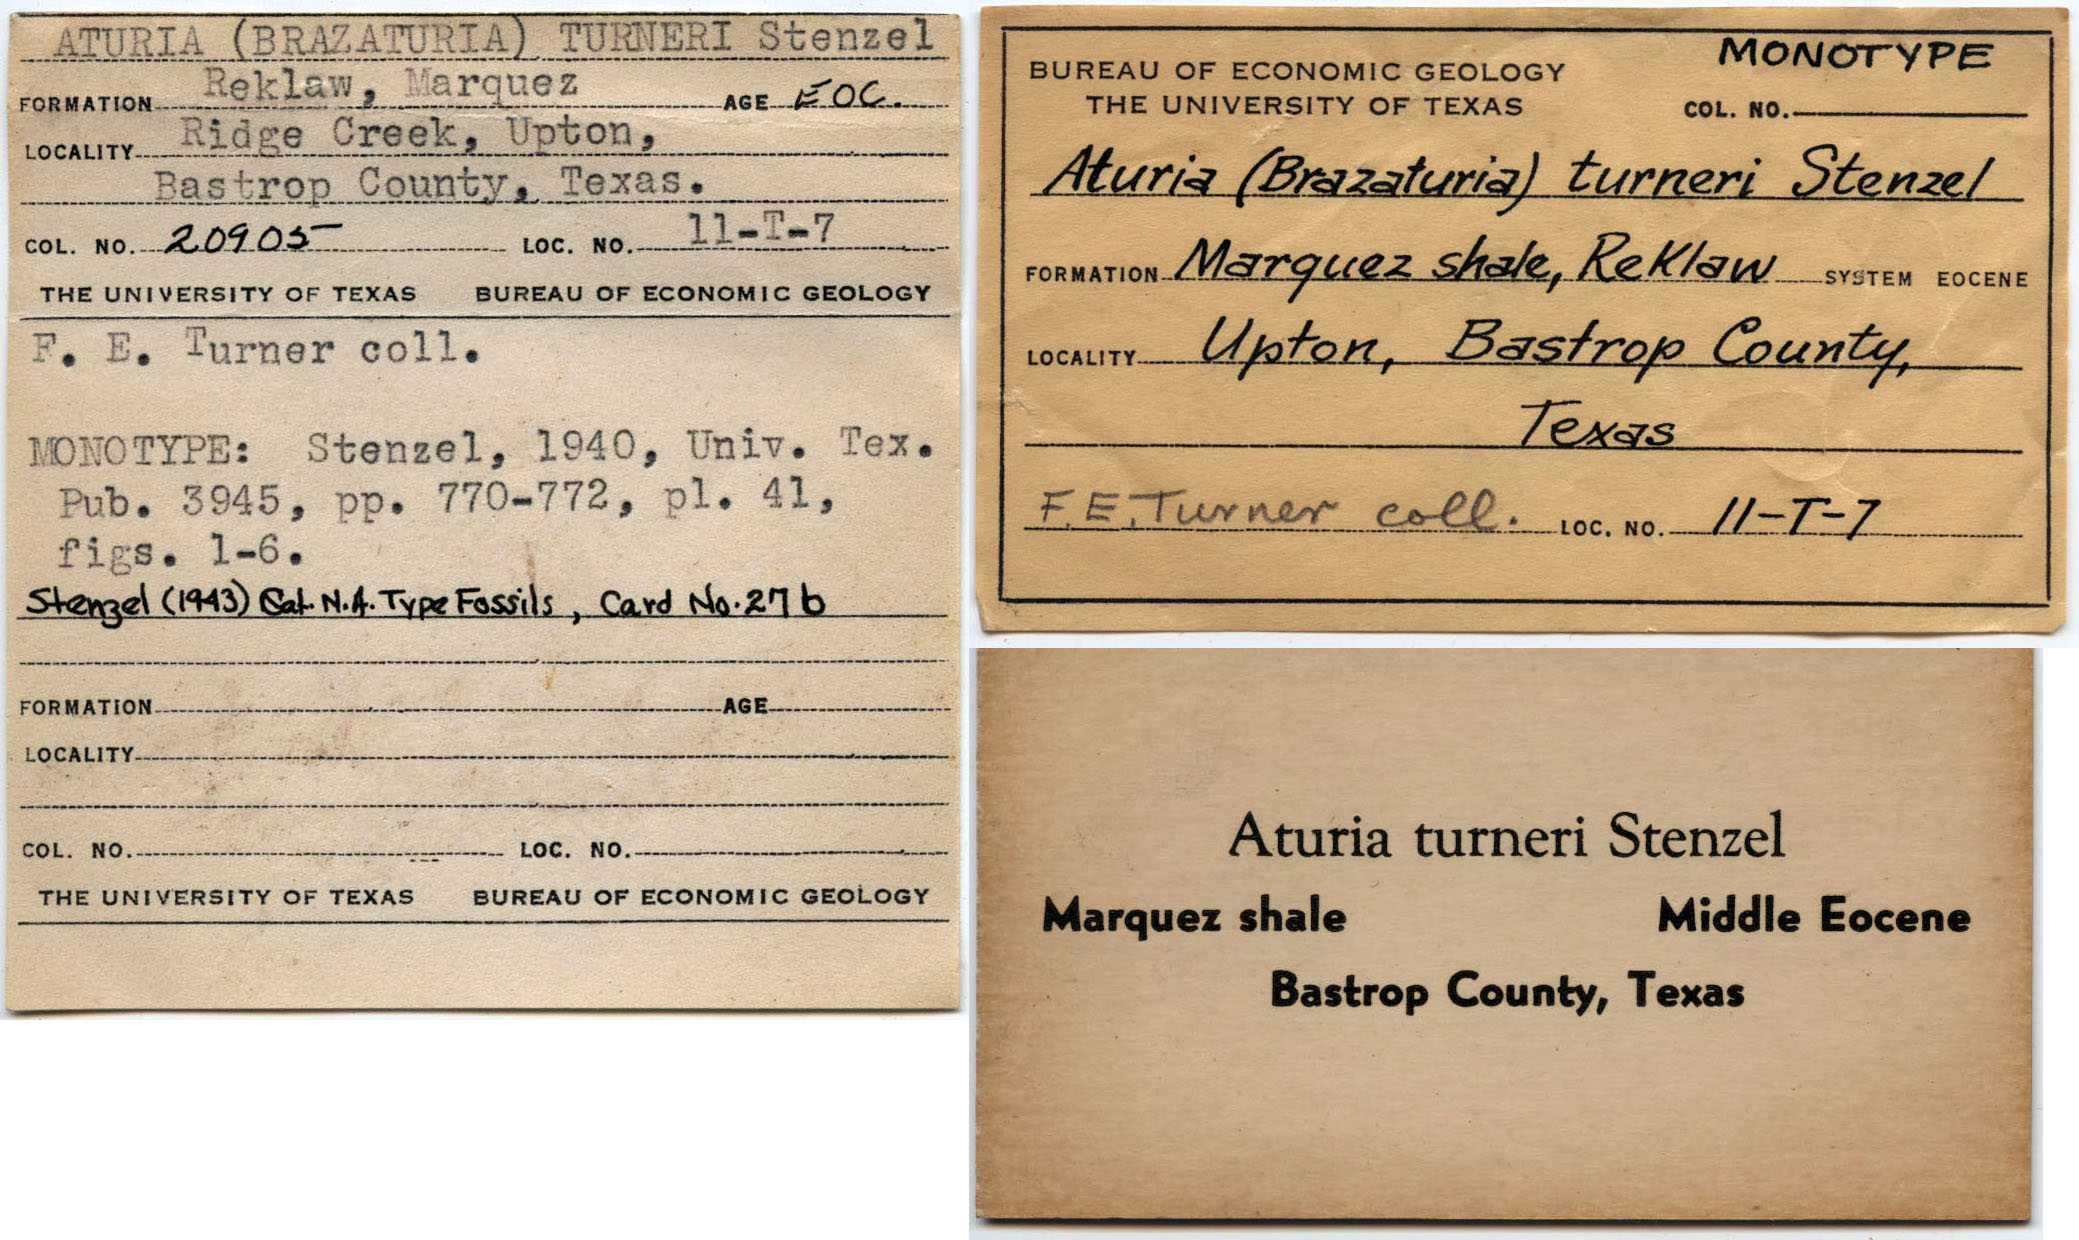 ATURIA (BRAZATURIA) TURNERI Stenzel
FORMATION Reklaw, Marquez AGE EOC.
LOCALITY Ridge Creek, Upton,
Bastrop County, Texas.
COL. NO. 20905 LOC. NO. 11-T-7
THE UNIVERSITY OF TEXAS BUREAU OF ECONOMIC GEOLOGY
F. E. Turner coll.
MONOTYPE: Stenzel, 1940, Univ. Tex.
Pub. 3945, pp. 770-772, pl. 41,
figs. 1-6.
Stenzel (1943) Cat. N.A. Type Fossils, Card No. 27b
FORMATION AGE
LOCALITY
COL. NO. LOC. NO.
THE UNIVERSITY OF TEXAS BUREAU OF ECONOMIC GEOLOGY
MONOTYPE
BUREAU OF ECONOMIC GEOLOGY
THE UNIVERSITY OF TEXAS COL. NO.
Aturia (Brazaturia) turneri Stenzel
FORMATION Marquez shale, Reklaw SYSTEM EOCENE
LOCALITY Upton, Bastrop County,
Texas
F.E. Turner coll. LOC. NO. 11-T-7
Aturia turneri Stenzel
Marquez shale Middle Eocene
Bastrop County, Texas